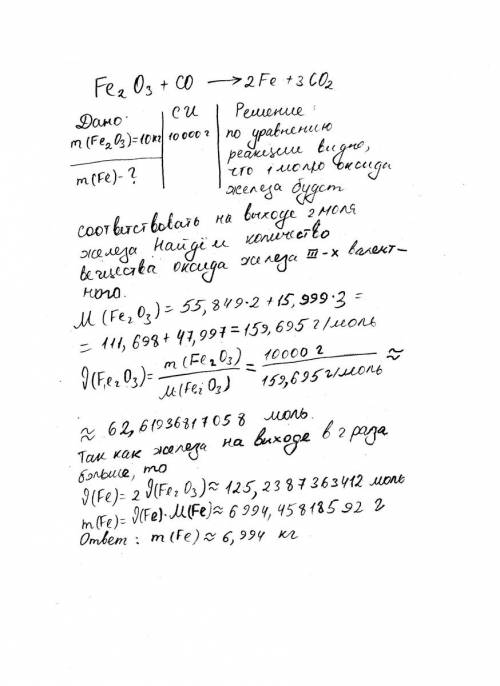 Fe₂O₃ + CO → 2Fe + 3CO₂
Дано: СИ Решение:
m(Fe₂O₃)=10кг 10000 г по уравнению
реакции видно,
m(Fe)-? что 1 молю оксида
железа будет
соответствовать на выходе 2 моля
железа. Найдём количество
вещества оксида железа III-х валент-
ного.
M(Fe₂O₃) = 55,849·2 + 15,999·3 =
= 111,698 + 47,997 = 159,695 г/моль
ϑ(Fe₂O₃) = m(Fe₂O₃) / M(Fe₂O₃) = 10000 г / 159,695 г/моль ≈
≈ 62,6193681705 8 моль.
Так как железа на выходе в 2 раза
больше, то
ϑ(Fe) = 2 ϑ(Fe₂O₃) ≈ 125,2387363412 моль
m(Fe) = ϑ(Fe)·M(Fe) ≈ 6994,45818592 г
Ответ: m(Fe) ≈ 6,994 кг